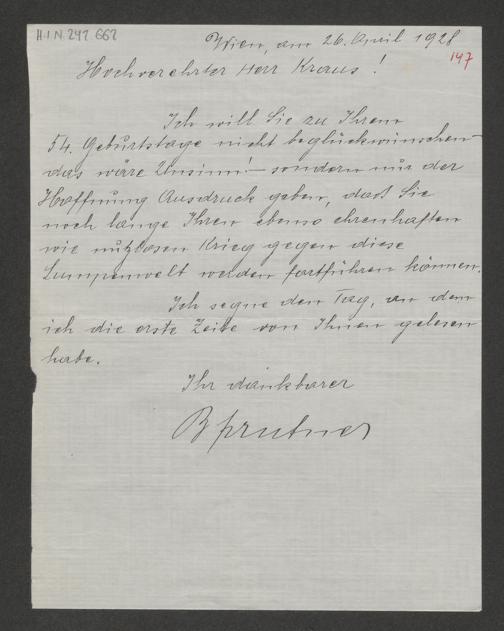 H.I.N. 241.662
Wien, am 26. April 1928
147
Hochverehrter Herr Kraus!
Ich will Sie zu Ihrem
54. Geburtstage nicht beglückwünschen –
das wäre Unsinn! – sondern nur der
Hoffnung Ausdruck geben, daß Sie
noch lange Ihren ebenso ehrenhaften
wie nutzlosen Krieg gegen diese
Lumpenwelt werden fortführen können.
Ich segne den Tag, an dem
ich die erste Zeile von Ihnen gelesen
habe.
Ihr dankbarer